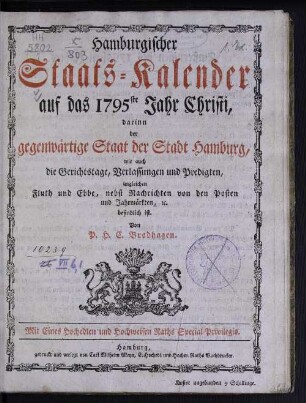 Hamburgischer
Staats-Kalender
auf das 1795ste Jahr Christi,
darinn
der
gegenwärtige Staat der Stadt Hamburg,
wie auch
die Gerichtstage, Verlassungen und Predigten,
imgleichen
Fluth und Ebbe, nebst Nachrichten von den Posten
und Jahrmärkten, ꝛc.
befindlich ist.
Von
P. H. C. Brodhagen.
10239
Mit Eines Hochedlen und Hochweisen Raths Special Privilegio.
Hamburg,
gedruckt und verlegt von Carl Wilhelm Meyn, E. Hochedl. und Hochw. Raths Buchdrucker.
Kostet ungebunden 9 Schillinge.